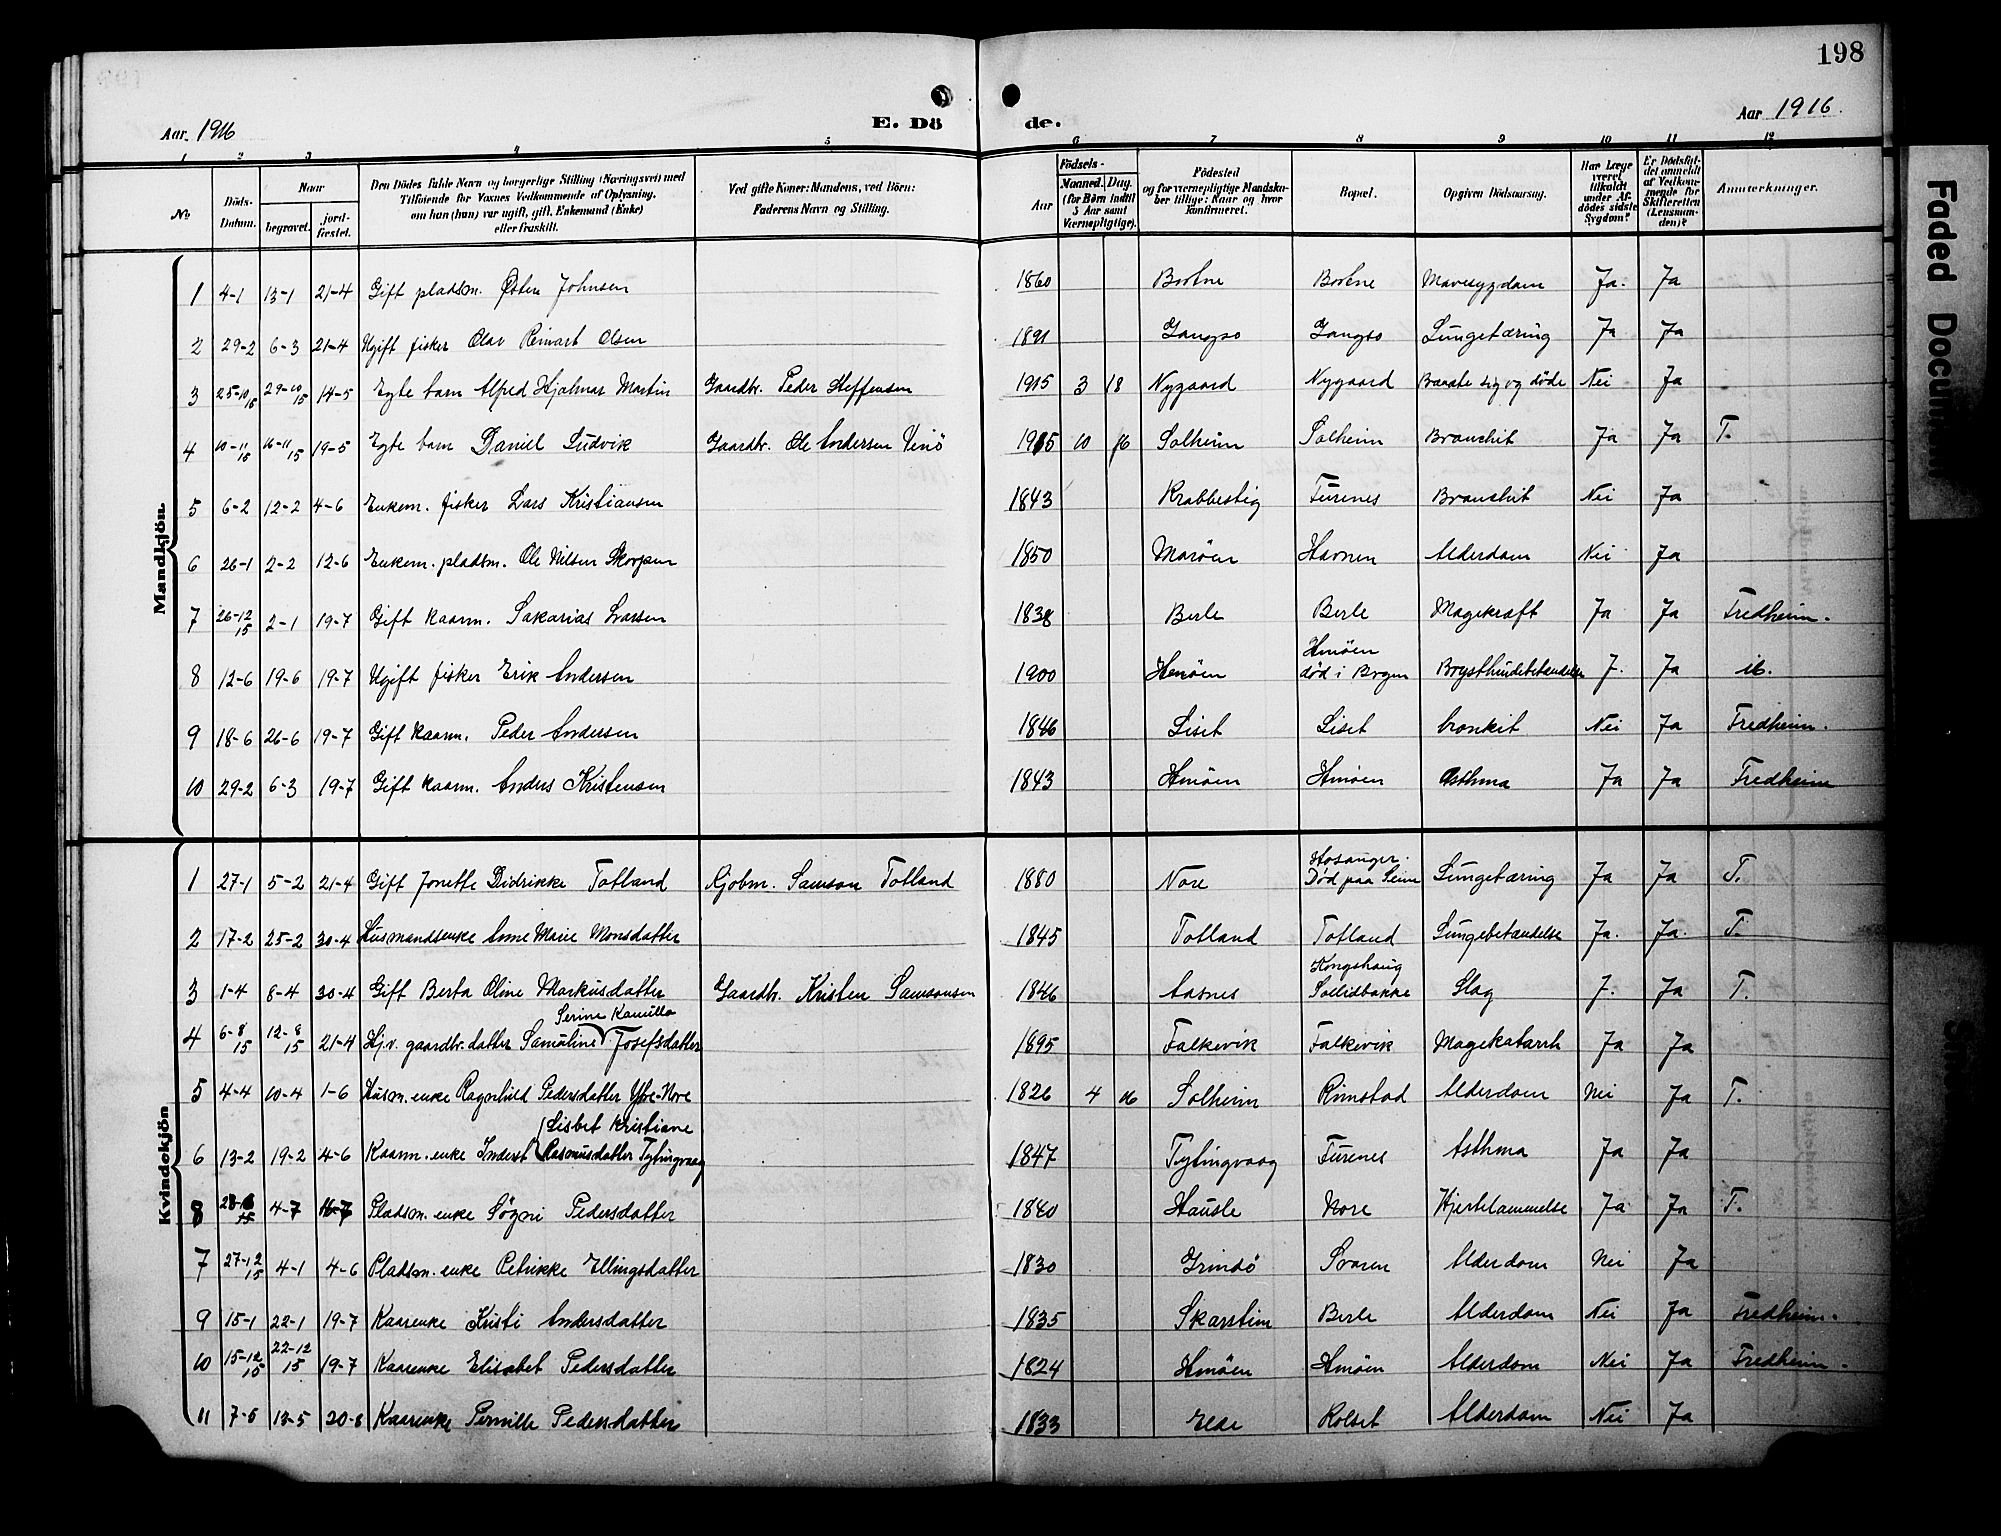 198
Aar 1916
E. Dö de.
Aar 1916.
1 2 3 4 5 6 7 8 9 10 11 12
No
Döds-Datum.
Naar
begravet.
jord-fæstet.
Den Dödes fulde Navn og borgerlige Stilling (Næringsvei) med
Tilföiende for Voxnes Vedkommende af Oplysning,
om han (hun) var ugift, gift, Enkemand (Enke)
eller fraskilt.
Ved gifte Koner: Mandens, ved Börn:
Faderens Navn og Stilling.
Aar
Födsels-
Maaned. Dag.
(for Börn indtil
5 Aar samt
Værnepligtige).
Födested
og for værnepligtige Mandska-
ber tillige: Naar og hvor
konfirmeret.
Bopæl.
Opgiven Dödsaarsag.
Har Læge
været
tilkaldt
under Af-
dödes sidste
Sygdom?
Er Dödsfal-
det anmeldt
af Vedkom-
mende for
Skifteretten
(Lensman-
den)?
Anmærkninger.
Mandkjön.
1 4-1 13-1 21-4 Gift pladsm. Østen Johnsen 1860 Bortne Bortne Mavesygdom Ja. Ja
2 29-2 6-3 21-4 Ugift fisker Olav Reinart Olsen 1891 Gangsö Gangsö Lungetæring Ja Ja
3 25-10/15 29-10/15 14-5 Egte barn Alfred Hjalmar Martin Gaardbr. Peder Steffensen 1915 3 18 Nygaard Nygaard Braate sig og döde Nei Ja
4 10-11/15 16-11/15 19-5 Egte barn Daniel Ludvik Gaardbr. Ole Andersen Vinö 1915 10 16 Solheim Solheim Bronchit Ja Ja T.
5 6-2 12-2 4-6 Enkem. fisker Lars Kristiansen 1843 Krabbestig Furenes Bronchit Nei Ja
6 26-1 2-2 12-6 Enkem. pladsm. Ole Nilsen Skorpen 1850 Maröen Havnen Alderdom Nei Ja
7 26-12/15 2-1 19-7 Gift kaarm. Sakarias Larsen 1838 Berle Berle Magekræft Ja Ja Fredheim.
8 12-6 19-6 19-7 Ugift fisker Erik Andersen 1900 Hmöen Hmöen
död i Brgen Brysthindebetændelse J. Ja ib.
9 18-6 26-6 19-7 Gift kaarm. Peder Andersen 1846 Liset Liset bronkit Nei Ja Fredheim.
10 29-2 6-3 19-7 Gift kaarm. Anders Kristensen 1843 Hmöen Hmöen Asthma Ja Ja Fredheim
Kvindekjön
1 27-1 5-2 21-4 Gift Jonette Didrikke Totland Kjöbm. Samson Totland 1880 Nore Hosanger.
Död paa Seim Lungetæring Ja Ja T.
2 17-2 25-2 30-4 Husmandsenke Anne Marie Monsdatter 1845 Totland Totland Lungebetændelse Ja. Ja. T.
3 1-4 8-4 30-4 Gift Berta Oline Markusdatter Gaardbr. Kristen Samsonsen 1846 Aasnes Kongshaug
Sollidbakke Slag J. Ja T.
Serine Kamilla
4 6-8/15 12-8/15 21-4 Hj.v. gaardbr.datter Samuline Josefsdatter 1895 Falkevik Falkevik Magekatarrh Ja Ja
5 4-4 10-4 1-6 Husm. enke Ragnhild Pedersdatter Ytre-Nore 1826 4 16 Solheim Rimstad Alderdom Nei Ja T.
Lisbet Kristiane
6 13-2 19-2 4-6 Kaarm. enke Inderst Rasmusdatter Tytingvaag 1847 Tytingvaag Furenes Asthma Ja Ja
8 4-7 Pladsm. enke Søgni Pedersdatter 1840 Hausle Nore Hjertelammelse Ja Ja T.
7 27-12/15 4-1 4-6 Pladsm. enke Petrikke Ellingsdatter 1830 Grindö Svaren Alderdom Nei Ja
9 15-1 22-1 19-7 Kaarenke Kristi Andersdatter 1835 Skarstein Berle Alderdom Nei Ja Fredheim.
10 15-12/15 22-12/15 19-7 Kaarenke Elisabet Pedersdatter 1824 Hmöen Hmöen Alderdom Nei Ja Fredheim.
11 7-5 13-5 20-8 Kaarenke Pernille Pedersdatter 1833 Elde Rolset Alderdom Nei Ja
Faded Document